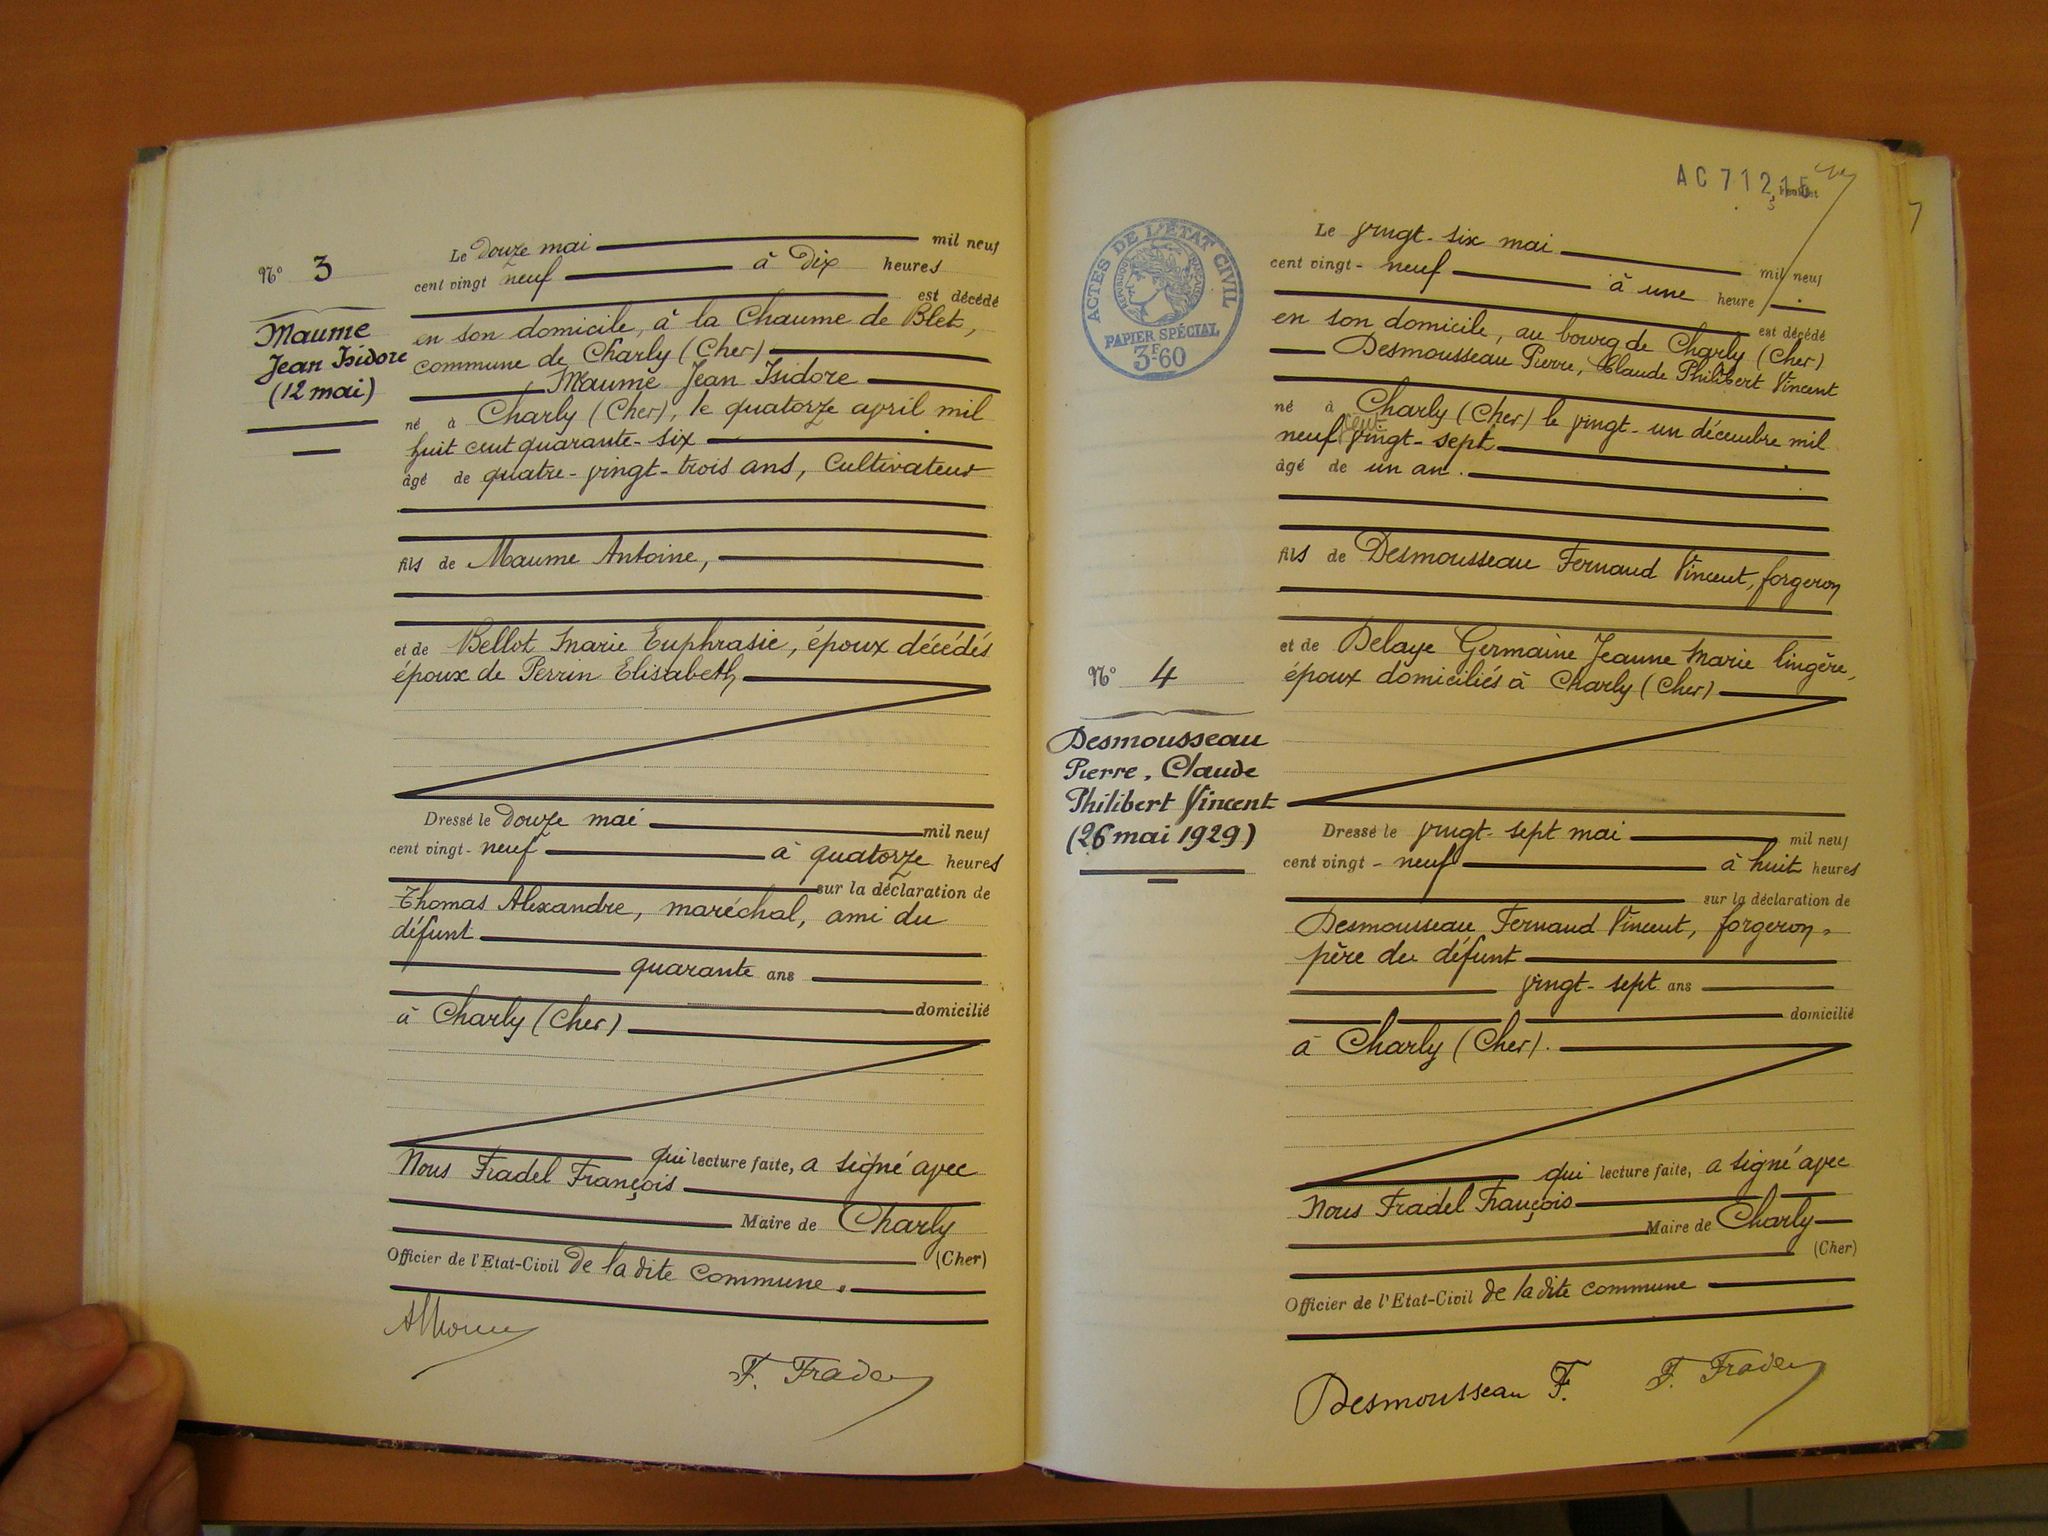 N° 3
Maume
Jean Isidore
(12 mai)
Le douze mai mil neuf
cent vingt neuf à dix heures
est décédé
en son domicile, à la Chaume de Blet,
commune de Charly (Cher)
Maume Jean Isidore
né à Charly (Cher), le quatorze avril mil
huit cent quarante-six
âgé de quatre-vingt-trois ans, Cultivateur
fils de Maume Antoine,
et de Bellot Marie Euphrasie, époux décédés
époux de Perrin Elisabeth
Dressé le douze mai mil neuf
cent vingt-neuf à quatorze heures
sur la déclaration de
Thomas Alexandre, maréchal, ami du
défunt
quarante ans
domicilié
à Charly (Cher)
qui lecture faite, a signé avec
Nous Fradel François
Maire de Charly
(Cher)
Officier de l'Etat-Civil de la dite commune.
AThomas
F. Fradel
AC 71215
ACTES DE L'ETAT CIVIL
REPUBLIQUE FRANÇAISE
PAPIER SPÉCIAL
3F60
N° 4
Desmousseau
Pierre, Claude
Philibert Vincent
(26 mai 1929)
Le vingt-six mai mil neuf
cent vingt-neuf à une heure
est décédé
en son domicile, au bourg de Charly (Cher)
Desmousseau Pierre, Claude Philibert Vincent
né à Charly (Cher) le vingt-un décembre mil
neuf cent vingt-sept
âgé de un an.
fils de Desmousseau Fernand Vincent, forgeron
et de Delaye Germaine Jeanne Marie lingère,
époux domiciliés à Charly (Cher)
Dressé le vingt-sept mai mil neuf
cent vingt-neuf à huit heures
sur la déclaration de
Desmousseau Fernand Vincent, forgeron,
père du défunt
vingt-sept ans
domicilié
à Charly (Cher).
qui lecture faite, a signé avec
Nous Fradel François
Maire de Charly
(Cher)
Officier de l'Etat-Civil de la dite commune
Desmousseau F.
F. Fradel